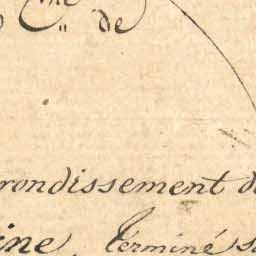 Cne de
rondissement d
ine, terminé s